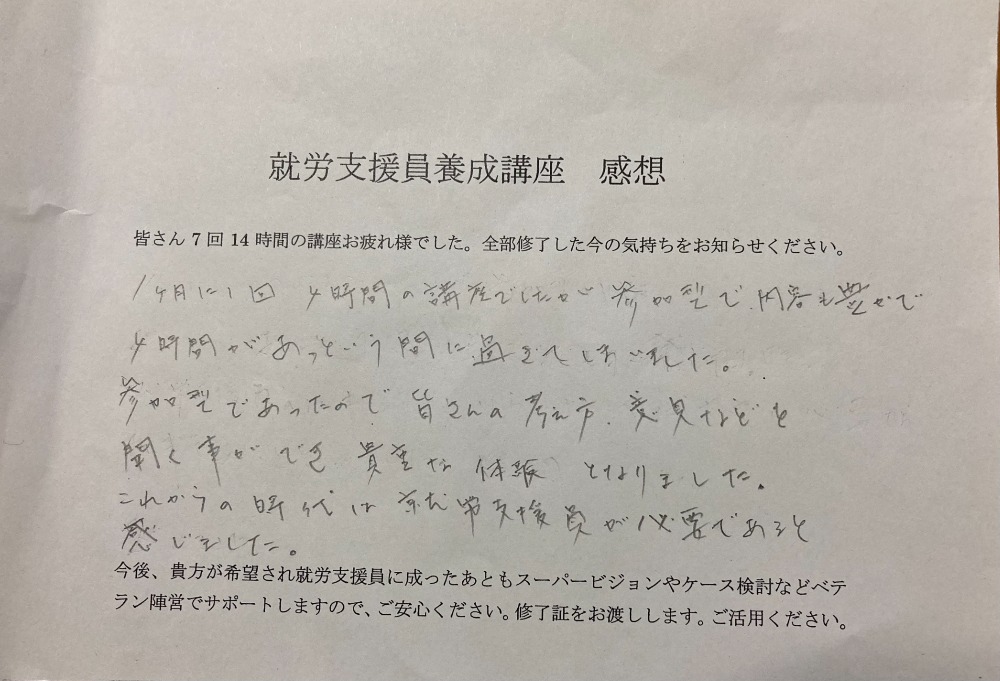 就労支援員養成講座　感想
皆さん 7 回 14 時間の講座お疲れ様でした。全部修了した今の気持ちをお知らせください。
1ヶ月に1回 4時間の講座でしたが 参加型で、内容も豊かで
4時間があっという間に過ぎてしまいました。
参加型であったので 皆さんの考え方、意見などを
聞く事ができ 貴重な体験 となりました。
これからの時代は 就労支援員が必要であると
感じました。
今後、貴方が希望され就労支援員に成ったあともスーパービジョンやケース検討などベテ
ラン陣営でサポートしますので、ご安心ください。修了証をお渡しします。ご活用ください。